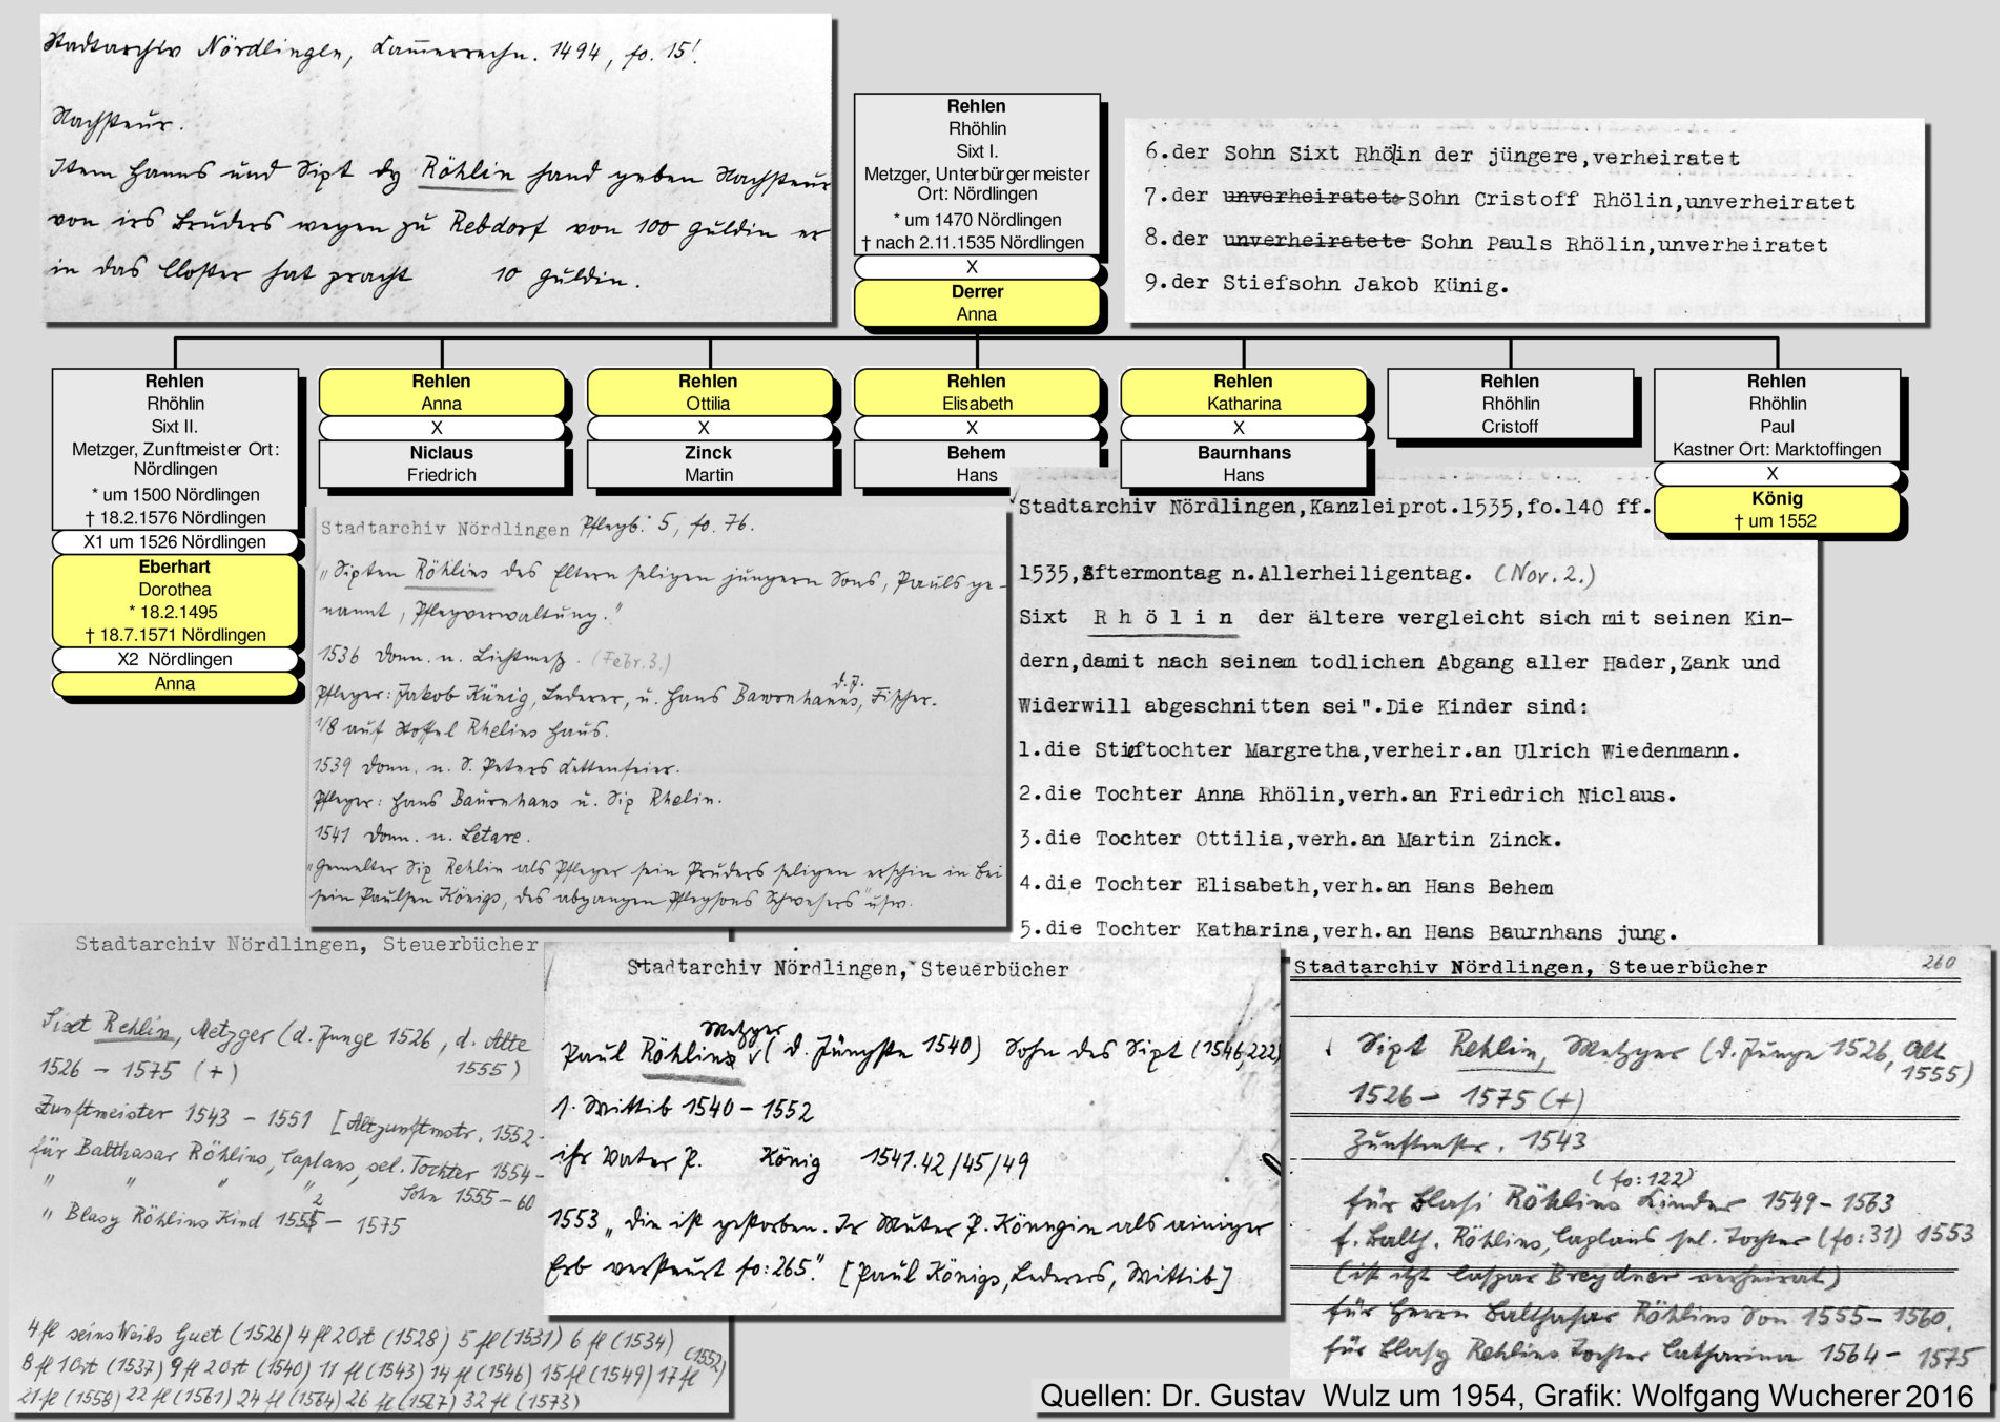 Stadtarchiv Nördlingen, Kammerrechn. 1494, fo. 15!
Nachsteur.
Item Hanns und Sixt dy Röhlin hand geben Nachsteur
von irs Bruders wegen zu Rebdorf von 100 guldin er
in das Closter hat pracht 10 guldin.
Rehlen
Rhöhlin
Sixt I.
Metzger, Unterbürgermeister
Ort: Nördlingen
* um 1470 Nördlingen
† nach 2.11.1535 Nördlingen
X
Derrer
Anna
6.der Sohn Sixt Rhölin der jüngere,verheiratet
7.der unverheiratete Sohn Cristoff Rhölin,unverheiratet
8.der unverheiratete Sohn Pauls Rhölin,unverheiratet
9.der Stiefsohn Jakob Künig.
Rehlen
Rhöhlin
Sixt II.
Metzger, Zunftmeister Ort:
Nördlingen
* um 1500 Nördlingen
† 18.2.1576 Nördlingen
X1 um 1526 Nördlingen
Eberhart
Dorothea
* 18.2.1495
† 18.7.1571 Nördlingen
X2 Nördlingen
Anna
Rehlen
Anna
X
Niclaus
Friedrich
Rehlen
Ottilia
X
Zinck
Martin
Rehlen
Elisabeth
X
Behem
Hans
Rehlen
Katharina
X
Baurnhans
Hans
Rehlen
Rhöhlin
Cristoff
Rehlen
Rhöhlin
Paul
Kastner Ort: Marktoffingen
X
König
† um 1552
Stadtarchiv Nördlingen Pflegb. 5, fo. 76.
"Sixten Röhlins des Eltern seligen jungern Sons, Pauls ge-
nannt, Pflegverwaltung."
1536 Donn. n. Lichtmeß. (Febr.3.)
Pfleger: Jakob Künig, Lederer, u. Hans Bawrnhanns, d.J. Fischer.
1/8 auf Stoffel Rhelins Haus.
1539 Donn. n. S. Peters Kettenfeier.
Pfleger: Hans Baurnhans u. Six Rhelin.
1541 Donn. n. Letare.
"Gemelter Six Rehlin als Pfleger sein Pruders seligen erschin in bei
sein Paulsen Königs, des abgangen Pflegsons Schwehers" usw.
Stadtarchiv Nördlingen,Kanzleiprot.1535,fo.140 ff.
1535,Aftermontag n.Allerheiligentag. (Nov.2.)
Sixt Rhölin der ältere vergleicht sich mit seinen Kin-
dern,damit nach seinem todlichen Abgang aller Hader,Zank und
Widerwill abgeschnitten sei".Die Kinder sind:
1.die Stieftochter Margretha,verheir.an Ulrich Wiedenmann.
2.die Tochter Anna Rhölin,verh.an Friedrich Niclaus.
3.die Tochter Ottilia,verh.an Martin Zinck.
4.die Tochter Elisabeth,verh.an Hans Behem
5.die Tochter Katharina,verh.an Hans Baurnhans jung.
Stadtarchiv Nördlingen, Steuerbücher
Sixt Rehlin, Metzger (d. Junge 1526, d. Alte
1526 - 1575 (+) 1555)
Zunftmeister 1543 - 1551 [Altzunftmstr. 1552
für Balthasar Röhlins, Caplans, sel. Tochter 1554-
" " " " Sohn 1555-60
" Blasy Röhlins Kind 1552 - 1575
4 fl seins Weibs Guet (1526) 4 fl 2 Ort (1528) 5 fl (1531) 6 fl (1534)
8 fl 1 Ort (1537) 9 fl 2 Ort (1540) 11 fl (1543) 14 fl (1546) 15 fl (1549) 17 fl (1552)
21 fl (1558) 22 fl (1561) 24 fl (1564) 26 fl (1567) 32 fl (1573)
Stadtarchiv Nördlingen, Steuerbücher
Paul Röhlins Metzger (d. Jüngste 1540) Sohn des Sixt (1546,222)
1. Wittib 1540 - 1552
ihr Vater P. König 1541.42/45/49
1553 "Die ist gestorben. Ir Muter P. Königin als ainiger
Erb versteurt fo:265." [Paul Königs, Lederers, Wittib]
Stadtarchiv Nördlingen, Steuerbücher 260
Sixt Rehlin, Metzger (d. Junge 1526, Alt
1526 - 1575 (+) 1555)
Zunftmstr. 1543
(fo:122)
für Blasi Röhlins Kinder 1549 - 1563
f. Balth. Röhlins, Caplans sel. Tochter (fo:31) 1553
(ist itzt Caspar Breydner verheirat)
für Herrn Balthasar Röhlins Son 1555 - 1560.
für Blasy Rehlins Tochter Catharina 1564 - 1575
Quellen: Dr. Gustav Wulz um 1954, Grafik: Wolfgang Wucherer 2016